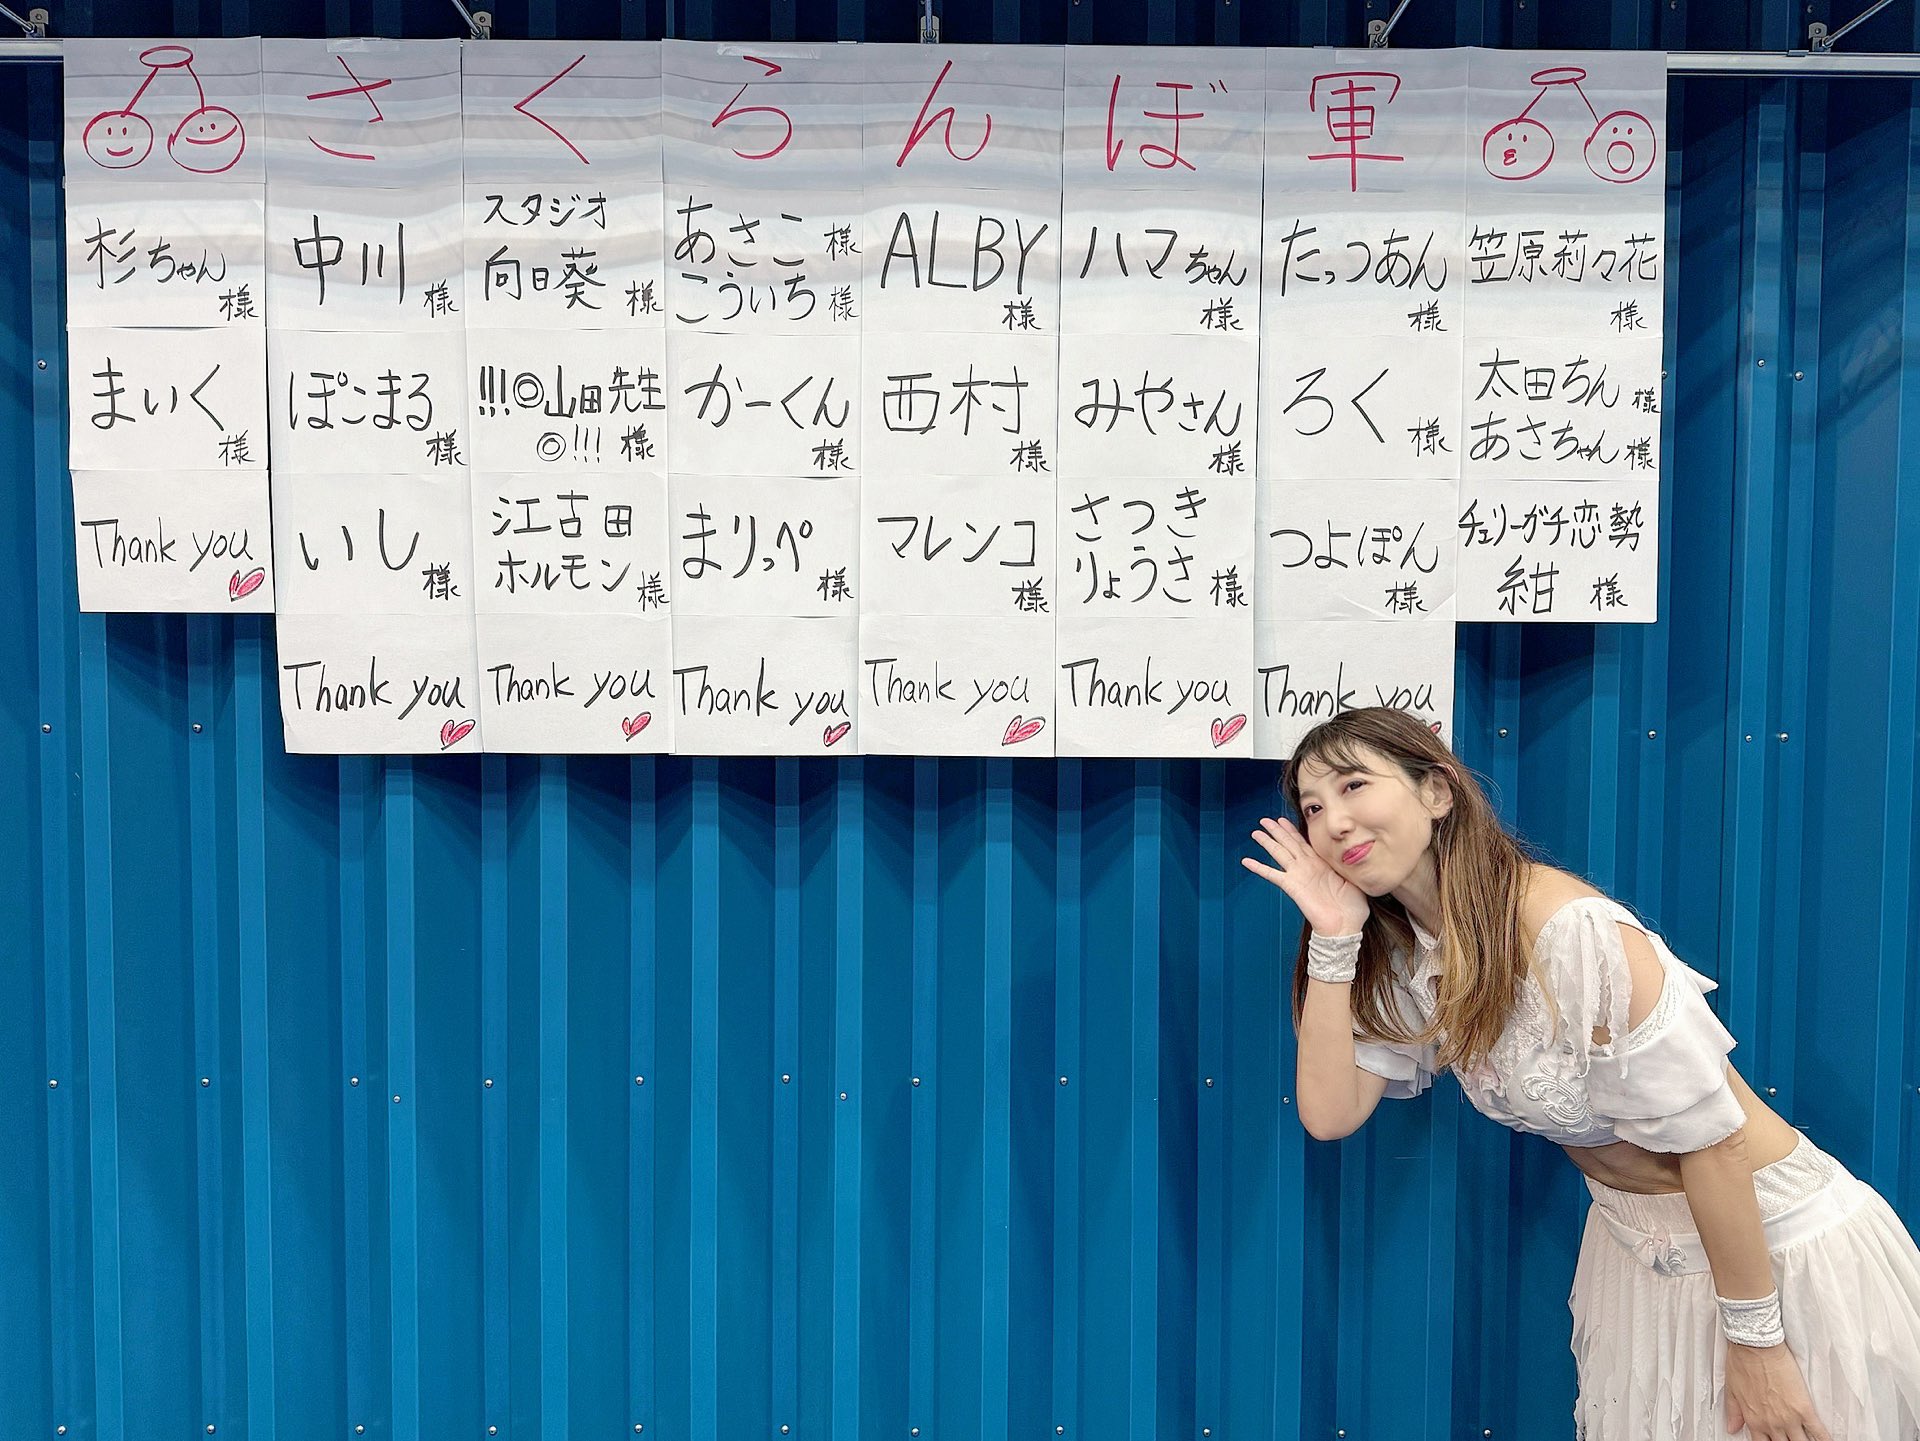 さくらんぼ軍
杉ちゃん
様
中川
様
スタジオ
向日葵 様
あさこ様
こういち様
ALBY
様
ハマちゃん
様
たっつあん
様
笠原莉々花
様
まいく
様
ぽこまる
様
!!!◎山田先生
◎!!! 様
かーくん
様
西村
様
みやさん
様
ろく 様
太田ちん様
あさちゃん様
Thank you
いし
様
江古田
ホルモン様
まりっぺ
様
マレンコ
様
さつき
りょうさ様
つよぽん
様
チェリーガチ恋勢
紺 様
Thank you
Thank you
Thank you
Thank you
Thank you
Thank you